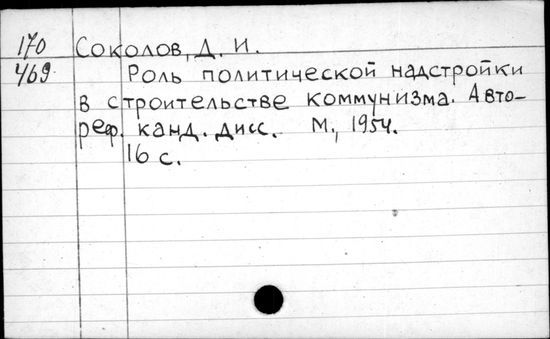 170 Соколов, Д. И.
469 Роль политической надстройки
в строительстве коммунизма. Авто-
реф. канд. дисс. М., 1954.
16 с.